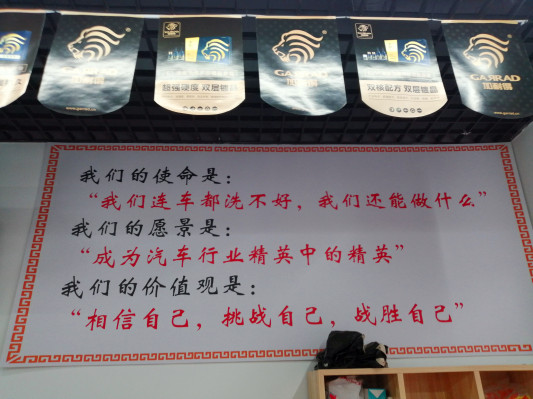 GARRAD
加耐德
超强硬度 双层镀晶
GARRAD
双核配方 双层镀晶
GARRAD
我们的使命是:
“我们连车都洗不好，我们还能做什么”
我们的愿景是:
“成为汽车行业精英中的精英”
我们的价值观是:
“相信自己，挑战自己，战胜自己”